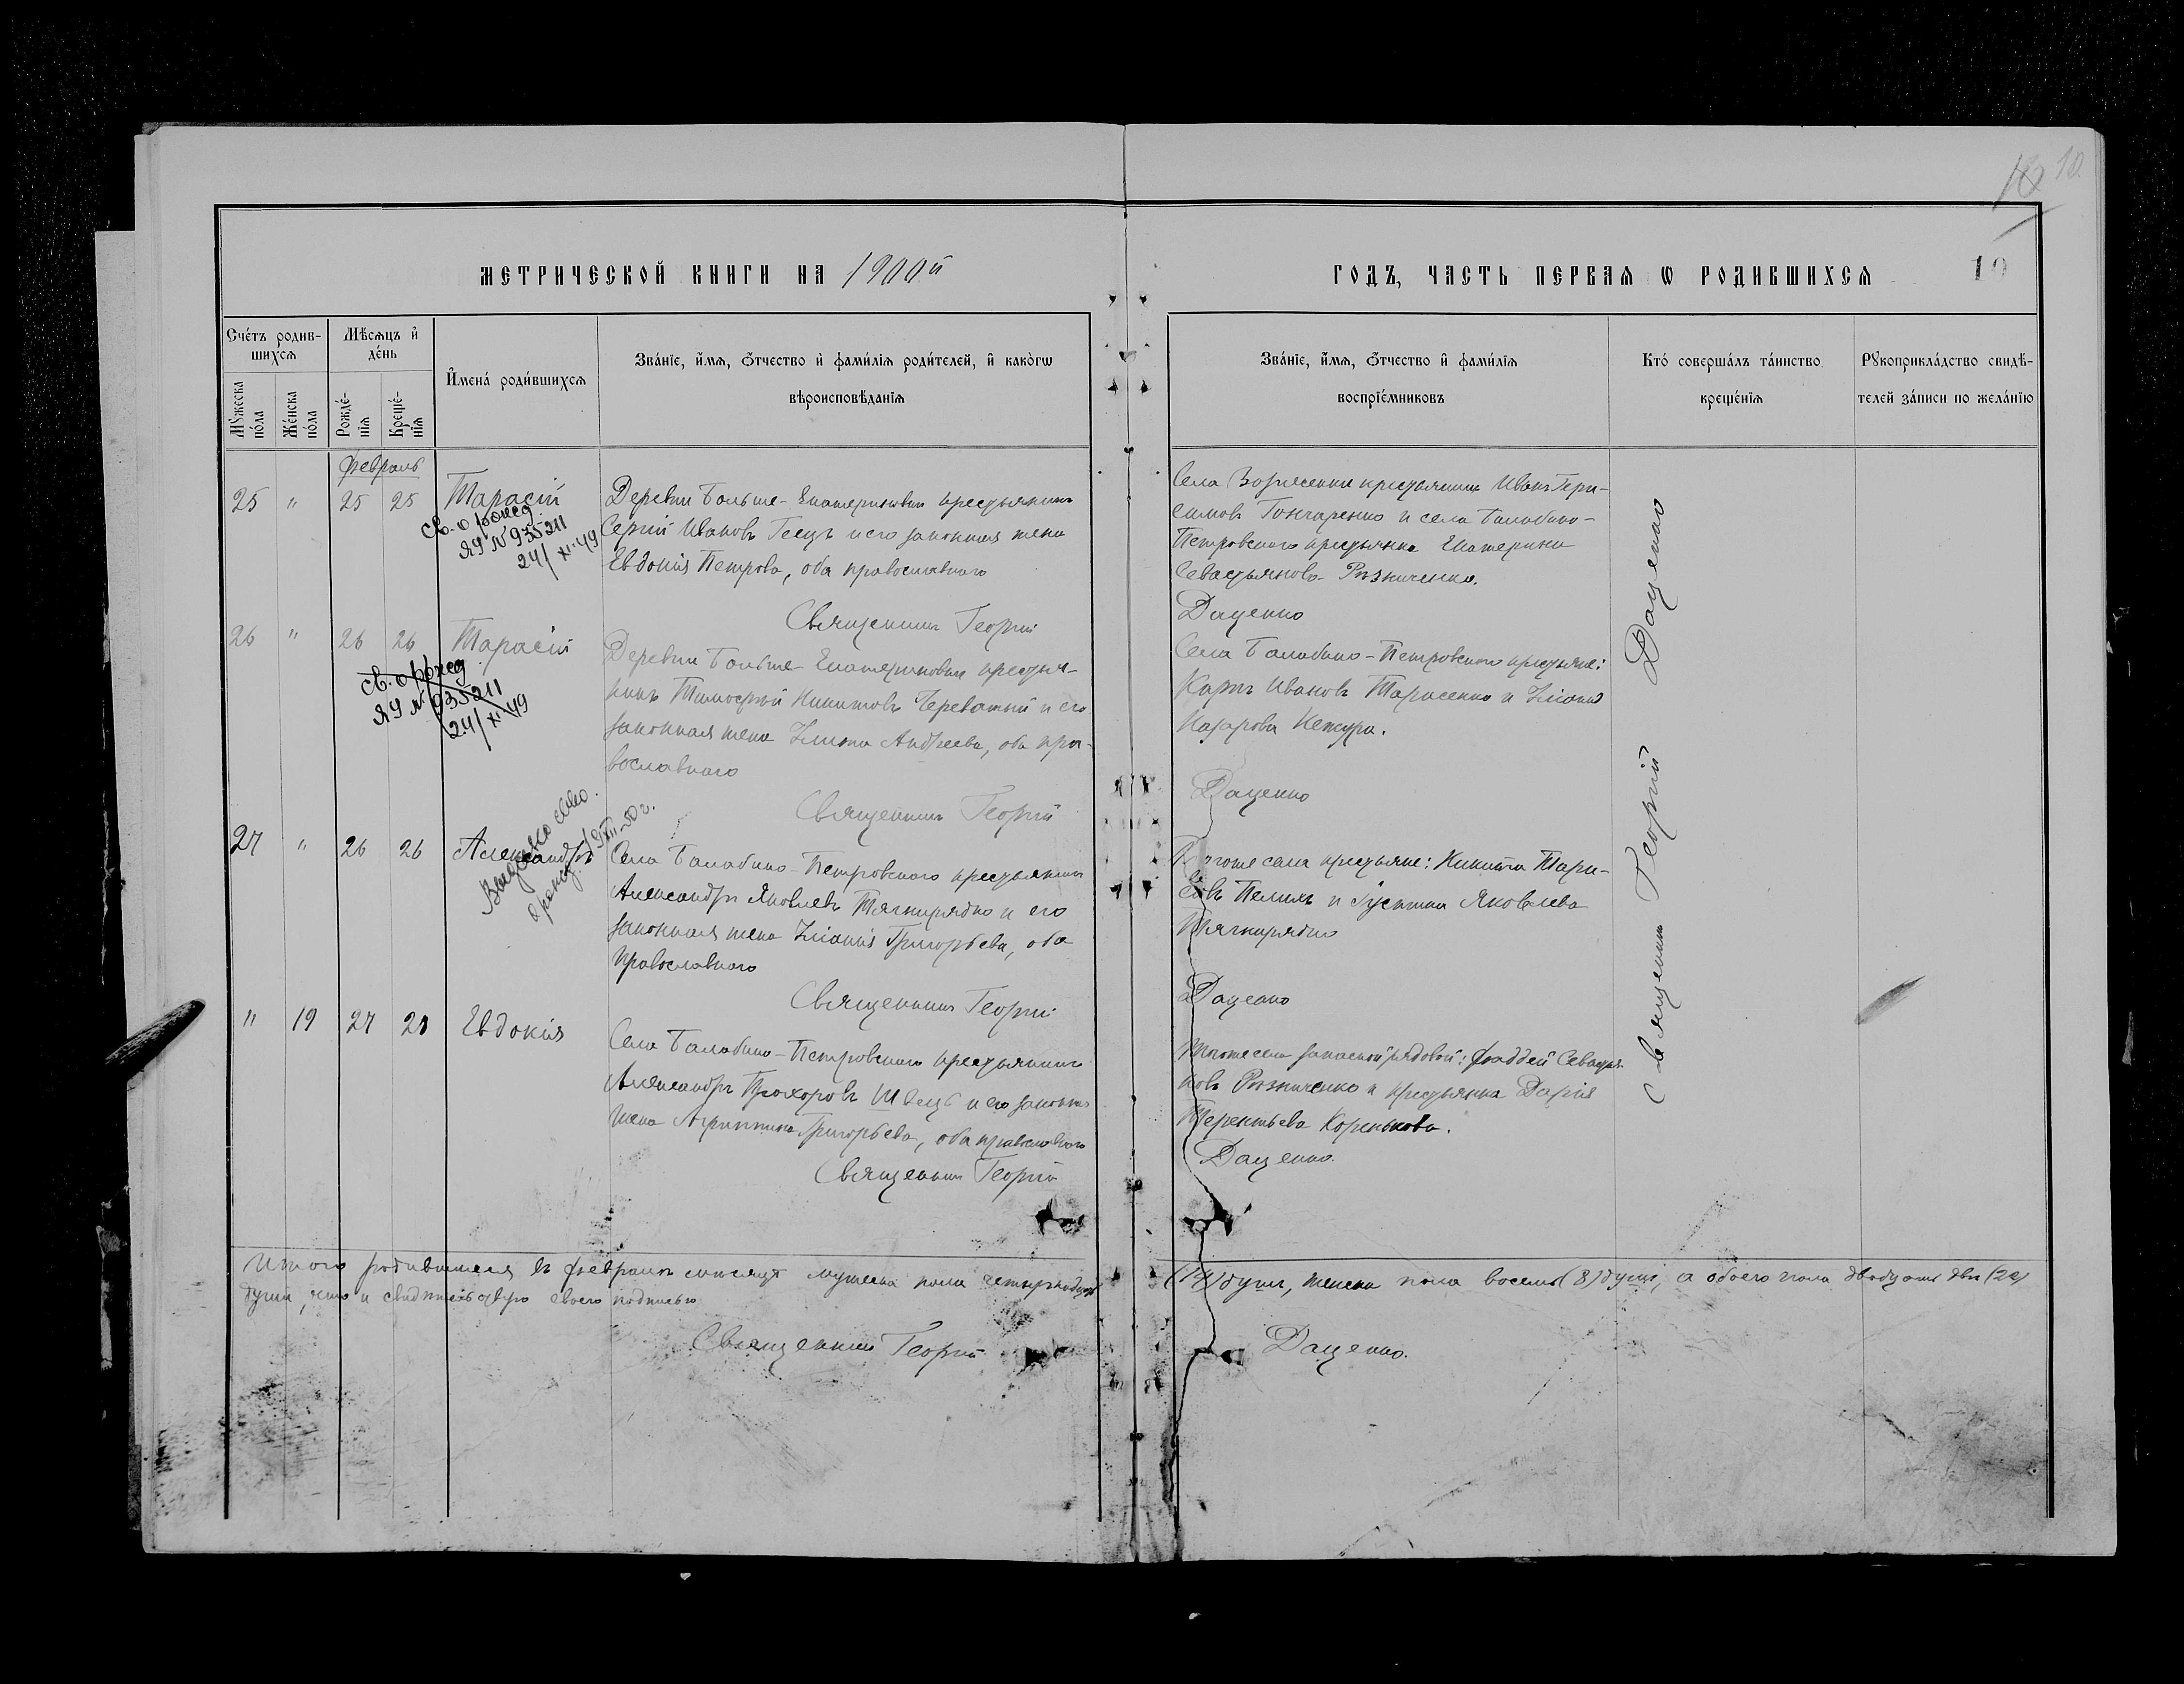 10 10
МЕТРИЧЕСКОЙ КНИГИ НА 1900й
ГОДЪ, ЧАСТЬ ПЕРВАЯ Ѡ РОДИВШИХСЯ
10
Сче́тъ родив-
шихсѧ
Мѣсѧцъ и҆
де́нь
И҆мена́ роди́вшихсѧ
Зва́нїе, и҆́мѧ, ѻ҆́тчество и҆ фами́лїѧ роди́телей, и҆ како́гѡ
вѣроисповѣ́данїѧ
Мꙋ́жеска
по́ла
Же́нска
по́ла
Рожде́-
нїѧ
Креще́-
нїѧ
Зва́нїе, и҆́мѧ, ѻ҆́тчество и҆ фами́лїѧ
воспрїе́мниковъ
Кто́ соверша́лъ та́инство
креще́нїѧ
Рꙋкоприкла́дство свидѣ́-
телей за́писи по жела́нїю
Февраль
25 " 25 25 Тарасій
Св. о рожд.
ЯУ № 935211
24/XI-49
Деревни Больше-Екатериновки крестьянинъ
Сергій Ивановъ и его законная жена
Евдокія Петрова, оба православнаго
Священникъ Георгій
Села Вознесенки крестьянинъ Иванъ Гера-
симовъ Гончаренко и села Балабино-
Петровскаго крестьянка Екатерина
Севастьянова Рѣзниченко.
Даценко
26 " 26 26 Тарасій
Св. о рожд
ЯУ № 935211
24/XI-49
Деревни Больше-Екатериновки крестья-
нинъ Тимоѳей Никитовъ Череватый и его
законная жена Андреева, оба пра-
вославнаго
Священникъ Георгій
Села Балабино-Петровскаго крестьяне:
Карпъ Ивановъ Тарасенко и
Назарова
Даценко
27 " 26 26 Александръ
Выдано свид.
о рожд.
Села Балабино-Петровскаго крестьянинъ
Александръ Яковлевъ Тягнирядно и его
законная жена Григорьева, оба
православнаго
Священникъ Георгій
Тогоже села крестьяне: Никита Тара-
совъ и Яковлева
Тягнирядно
Даценко
" 19 27 28 Евдокія
Села Балабино-Петровскаго крестьянинъ
Александръ Прохоровъ Швецъ и его законная
жена Агриппина Григорьева, оба православнаго
Священникъ Георгій
Тогоже села запасной рядовой: Фаддей Севастья-
новъ Рѣзниченко и крестьянка Дарія
Терентьева Коренькова.
Даценко.
Священникъ Георгій Даценко
Итого родившихся въ февралѣ мѣсяцѣ мужеска пола четырнадцать (14) душъ, женска пола восемь (8) душъ, а обоего пола двадцать двѣ (22)
души, что и свидѣтельствую своею подписью
Священникъ Георгій Даценко.